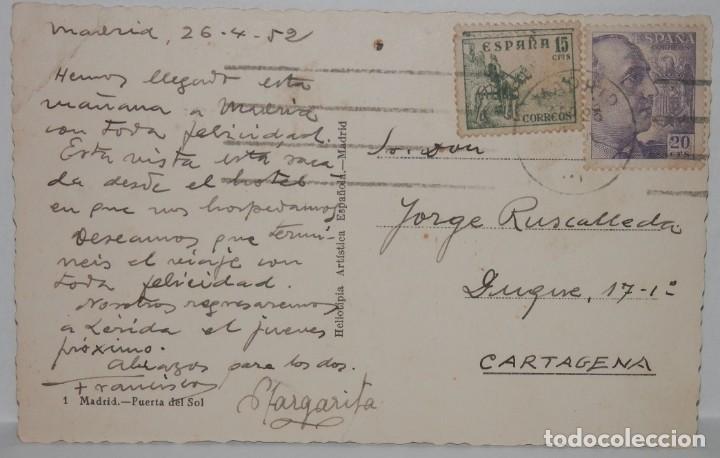 Madrid, 26-4-52
Hemos llegado esta
mañana a Madrid
con toda felicidad.
Esta vista está saca
da desde el hotel
en que nos hospedamos
Deseamos que termi-
neis el viaje con
toda felicidad.
Nosotros regresaremos
a Lérida el jueves
próximo.
Abrazos para los dos.
Francisco
Margarita
1 Madrid.—Puerta del Sol
Heliotipia Artística Española.—Madrid
ESPAÑA 15
CTS
CORREOS
ESPAÑA
CORREOS
20
CTS
Sr. Don
Jorge Ruscalleda
Duque, 17-1º
CARTAGENA
todocoleccion.net